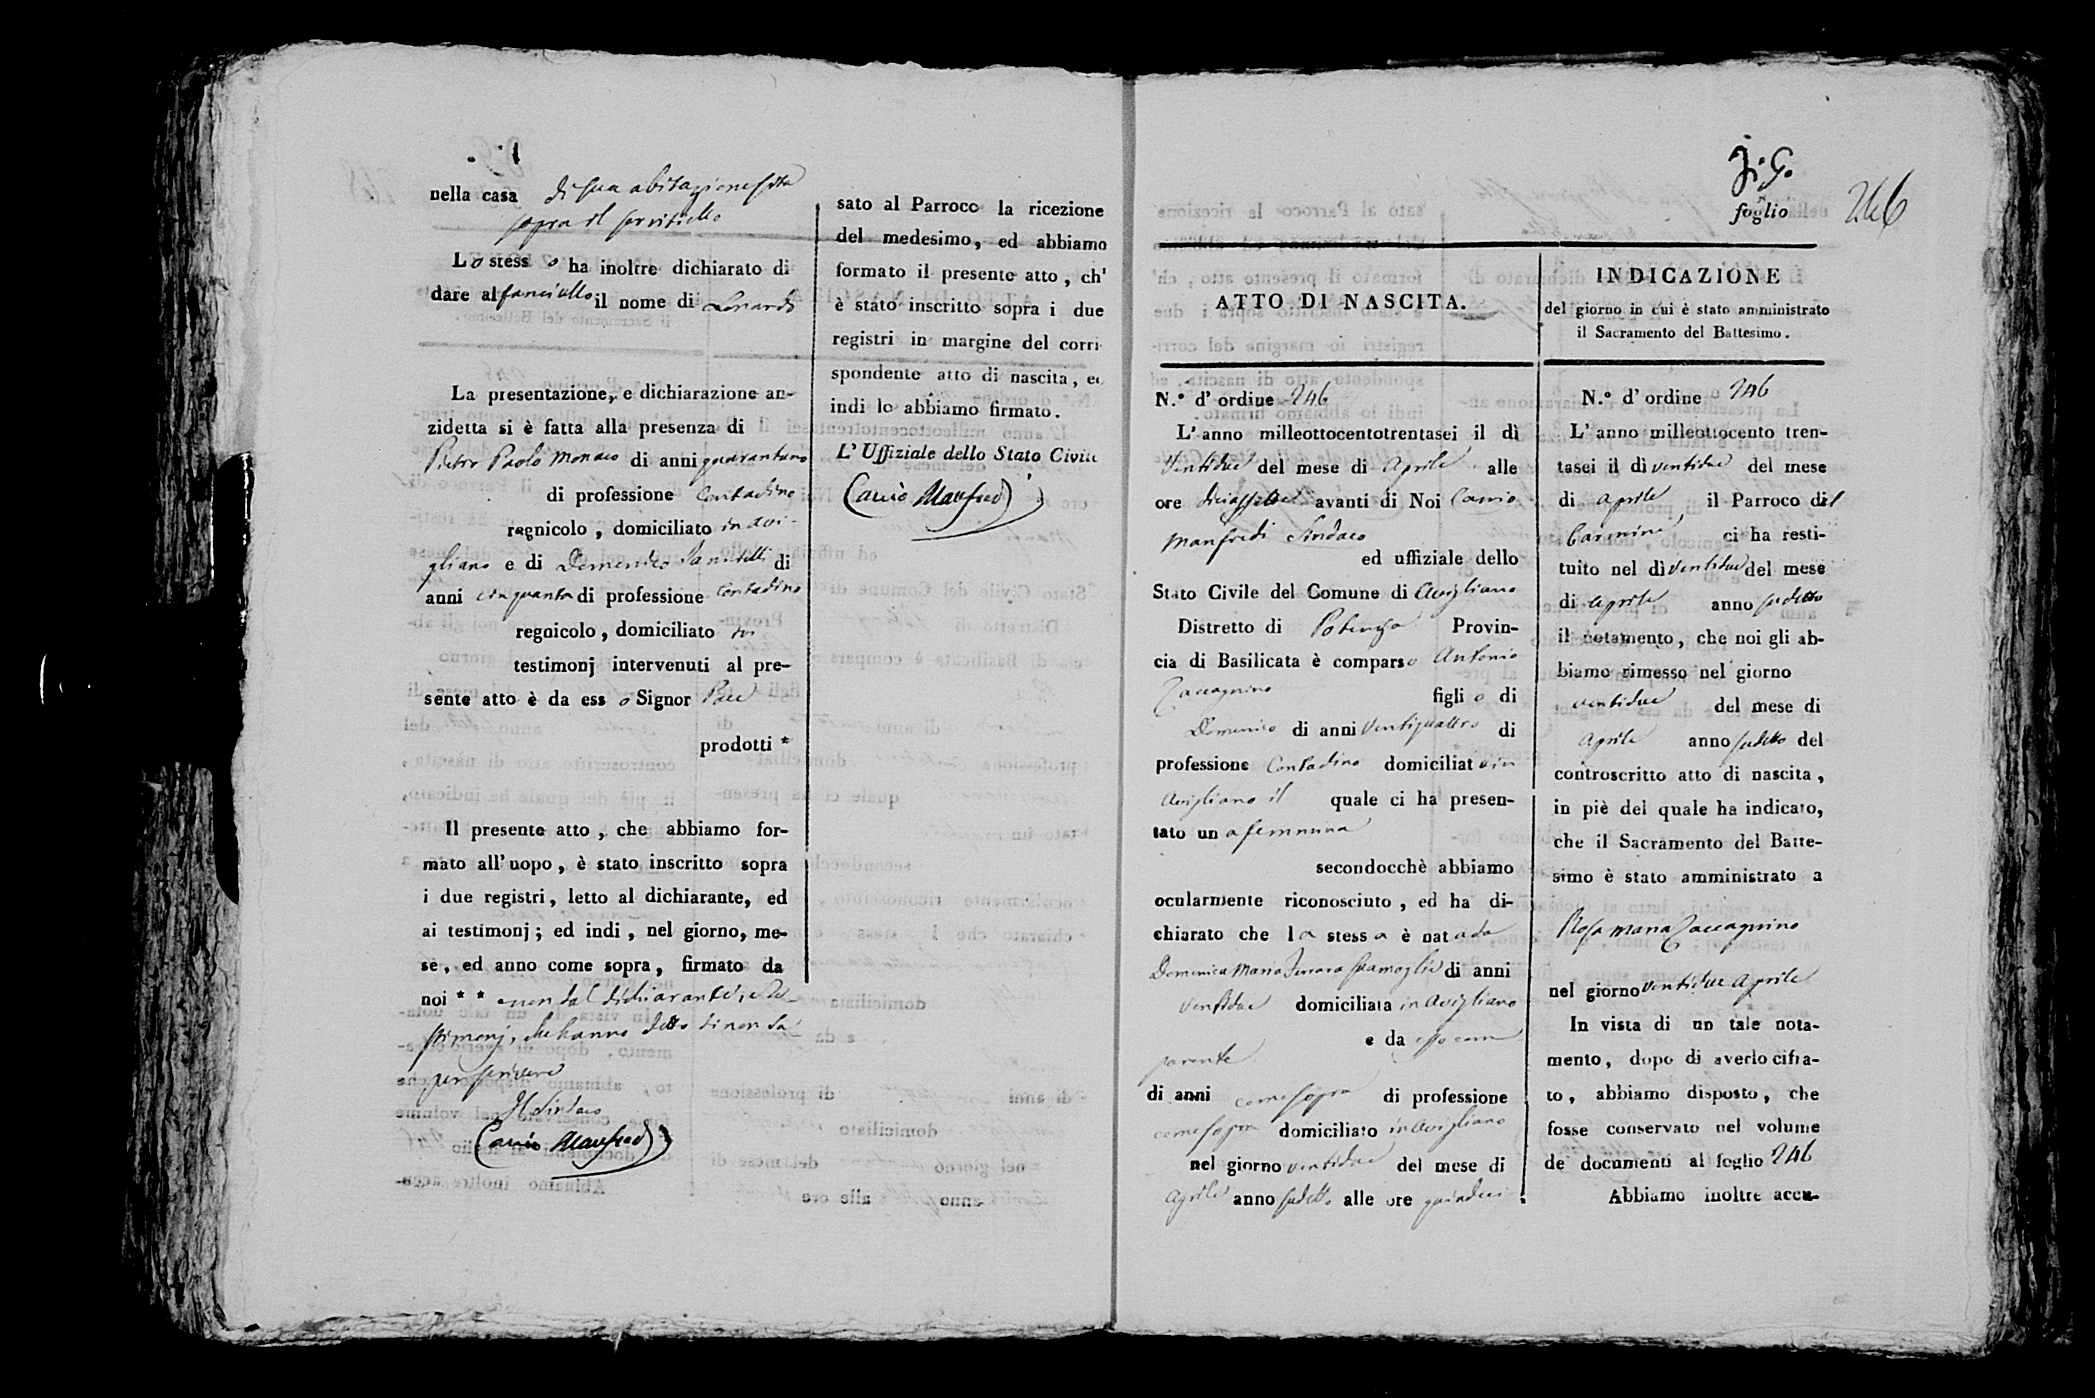 nella casa di sua abitazione sita
sopra il
Lo stesso ha inoltre dichiarato di
dare al fanciullo il nome di Lonardo
La presentazione, e dichiarazione an-
zidetta si è fatta alla presenza di
Pietro Paolo Monaco di anni quarantuno
di professione Contadino
regnicolo, domiciliato in Avi-
gliano e di Domenico di
anni cinquanta di professione Contadino
regnicolo, domiciliato in
testimonj intervenuti al pre-
sente atto è da esso Signor Pace
prodotti *
Il presente atto, che abbiamo for-
mato all'uopo, è stato inscritto sopra
i due registri, letto al dichiarante, ed
ai testimonj; ed indi, nel giorno, me-
se, ed anno come sopra, firmato da
noi * * e non dal dichiarante, e te-
stimonj, che hanno detto di non sa-
per scrivere
Il Sindaco
Canio Manfredi
sato al Parroco la ricezione
del medesimo, ed abbiamo
formato il presente atto, ch'
è stato inscritto sopra i due
registri in margine del corri
spondente atto di nascita, ed
indi lo abbiamo firmato.
L'Uffiziale dello Stato Civile
Canio Manfredi
foglio 246
ATTO DI NASCITA.
N.° d'ordine 246
L'anno milleottocentotrentasei il dì
Ventidue del mese di Aprile alle
ore diciassette avanti di Noi Canio
Manfredi Sindaco
ed uffiziale dello
Stato Civile del Comune di Avigliano
Distretto di Potenza Provin-
cia di Basilicata è comparso Antonio
Zaccagnino figlio di
Domenico di anni Ventiquattro di
professione Contadino domiciliato in
Avigliano il quale ci ha presen-
tato una femmina
secondocchè abbiamo
ocularmente riconosciuto, ed ha di-
chiarato che la stessa è nata da
Domenica Maria Ferrara sua moglie di anni
Ventidue domiciliata in Avigliano
e da esso com
parente
di anni come sopra di professione
come sopra domiciliato in Avigliano
nel giorno ventidue del mese di
Aprile anno sudetto alle ore quindici
INDICAZIONE
del giorno in cui è stato amministrato
il Sacramento del Battesimo.
N.° d'ordine 246
L'anno milleottocento tren-
tasei il dì ventidue del mese
di Aprile il Parroco del
Carmine, ci ha resti-
tuito nel dì ventidue del mese
di Aprile anno sudetto
il notamento, che noi gli ab-
biamo rimesso nel giorno
ventidue del mese di
Aprile anno sudetto del
controscritto atto di nascita,
in piè del quale ha indicato,
che il Sacramento del Batte-
simo è stato amministrato a
Rosa Maria Zaccagnino
nel giorno ventidue Aprile
In vista di un tale nota-
mento, dopo di averlo cifra-
to, abbiamo disposto, che
fosse conservato nel volume
de' documenti al foglio 246
Abbiamo inoltre accu-